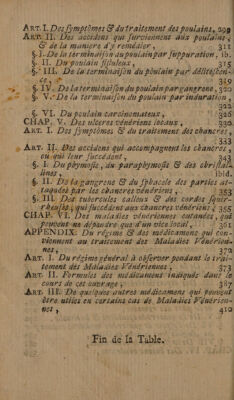 ART. I. Des symptômes & du traitement des poulains, 299
ART. II. Des accidens qui surviennent aux poulains,
& de la maniere d'y remédier, 311
§. I. De la terminaison du poulain par suppuration, ib.
§. II. Du poulain fistuleux, 315
§. III. De la terminaison du poulain par délitescen-
ce, 319
§. IV. De la terminaison du poulain par gangrene, 320
§. V. De la terminaison du poulain par induration,
322
§. VI. Du poulain carcinomateux, 326
CHAP. V. Des ulceres vénériens locaux, 332
ART. I. Des symptômes & du traitement des chancres,
333
ART. II. Des accidens qui accompagnent les chancres,
ou qui leur succédent, 343
§. I. Du phymosis, du paraphymosis & des chrystal-
lines, ibid.
§. II. De la gangrene & du sphacele des parties at-
taquées par les chancres vénériens, 353
§. III. Des tubercules calleux & des cordes squir-
rheuses, qui succédent aux chancres vénériens, 355
CHAP. VI. Des maladies vénériennes cutanées, qui
peuvent ne dépendre que d'un vice local, 361
APPENDIX. Du régime & des médicamens qui con-
viennent au traitement des Maladies Vénérien-
nes, 372
ART. I. Du régime général à observer pendant le trai-
tement des Maladies Vénériennes, 373
ART. II. Formules des médicamens indiqués dans le
cours de cet ouvrage, 387
ART. III. De quelques autres médicamens qui peuvent
être utiles en certains cas de Maladies Vénérien-
nes, 410
Fin de la Table.